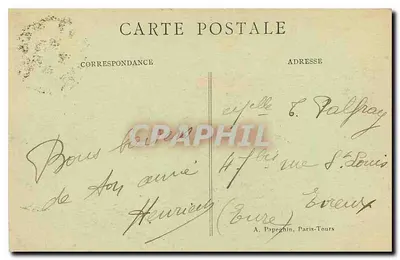 CARTE POSTALE
CORRESPONDANCE
ADRESSE
Bons baisers
de ton amie
Henriette
CPARAMA
Mlle T. Palfray
47 bis rue St Louis
Evreux
(Eure)
A. Papeghin, Paris-Tours